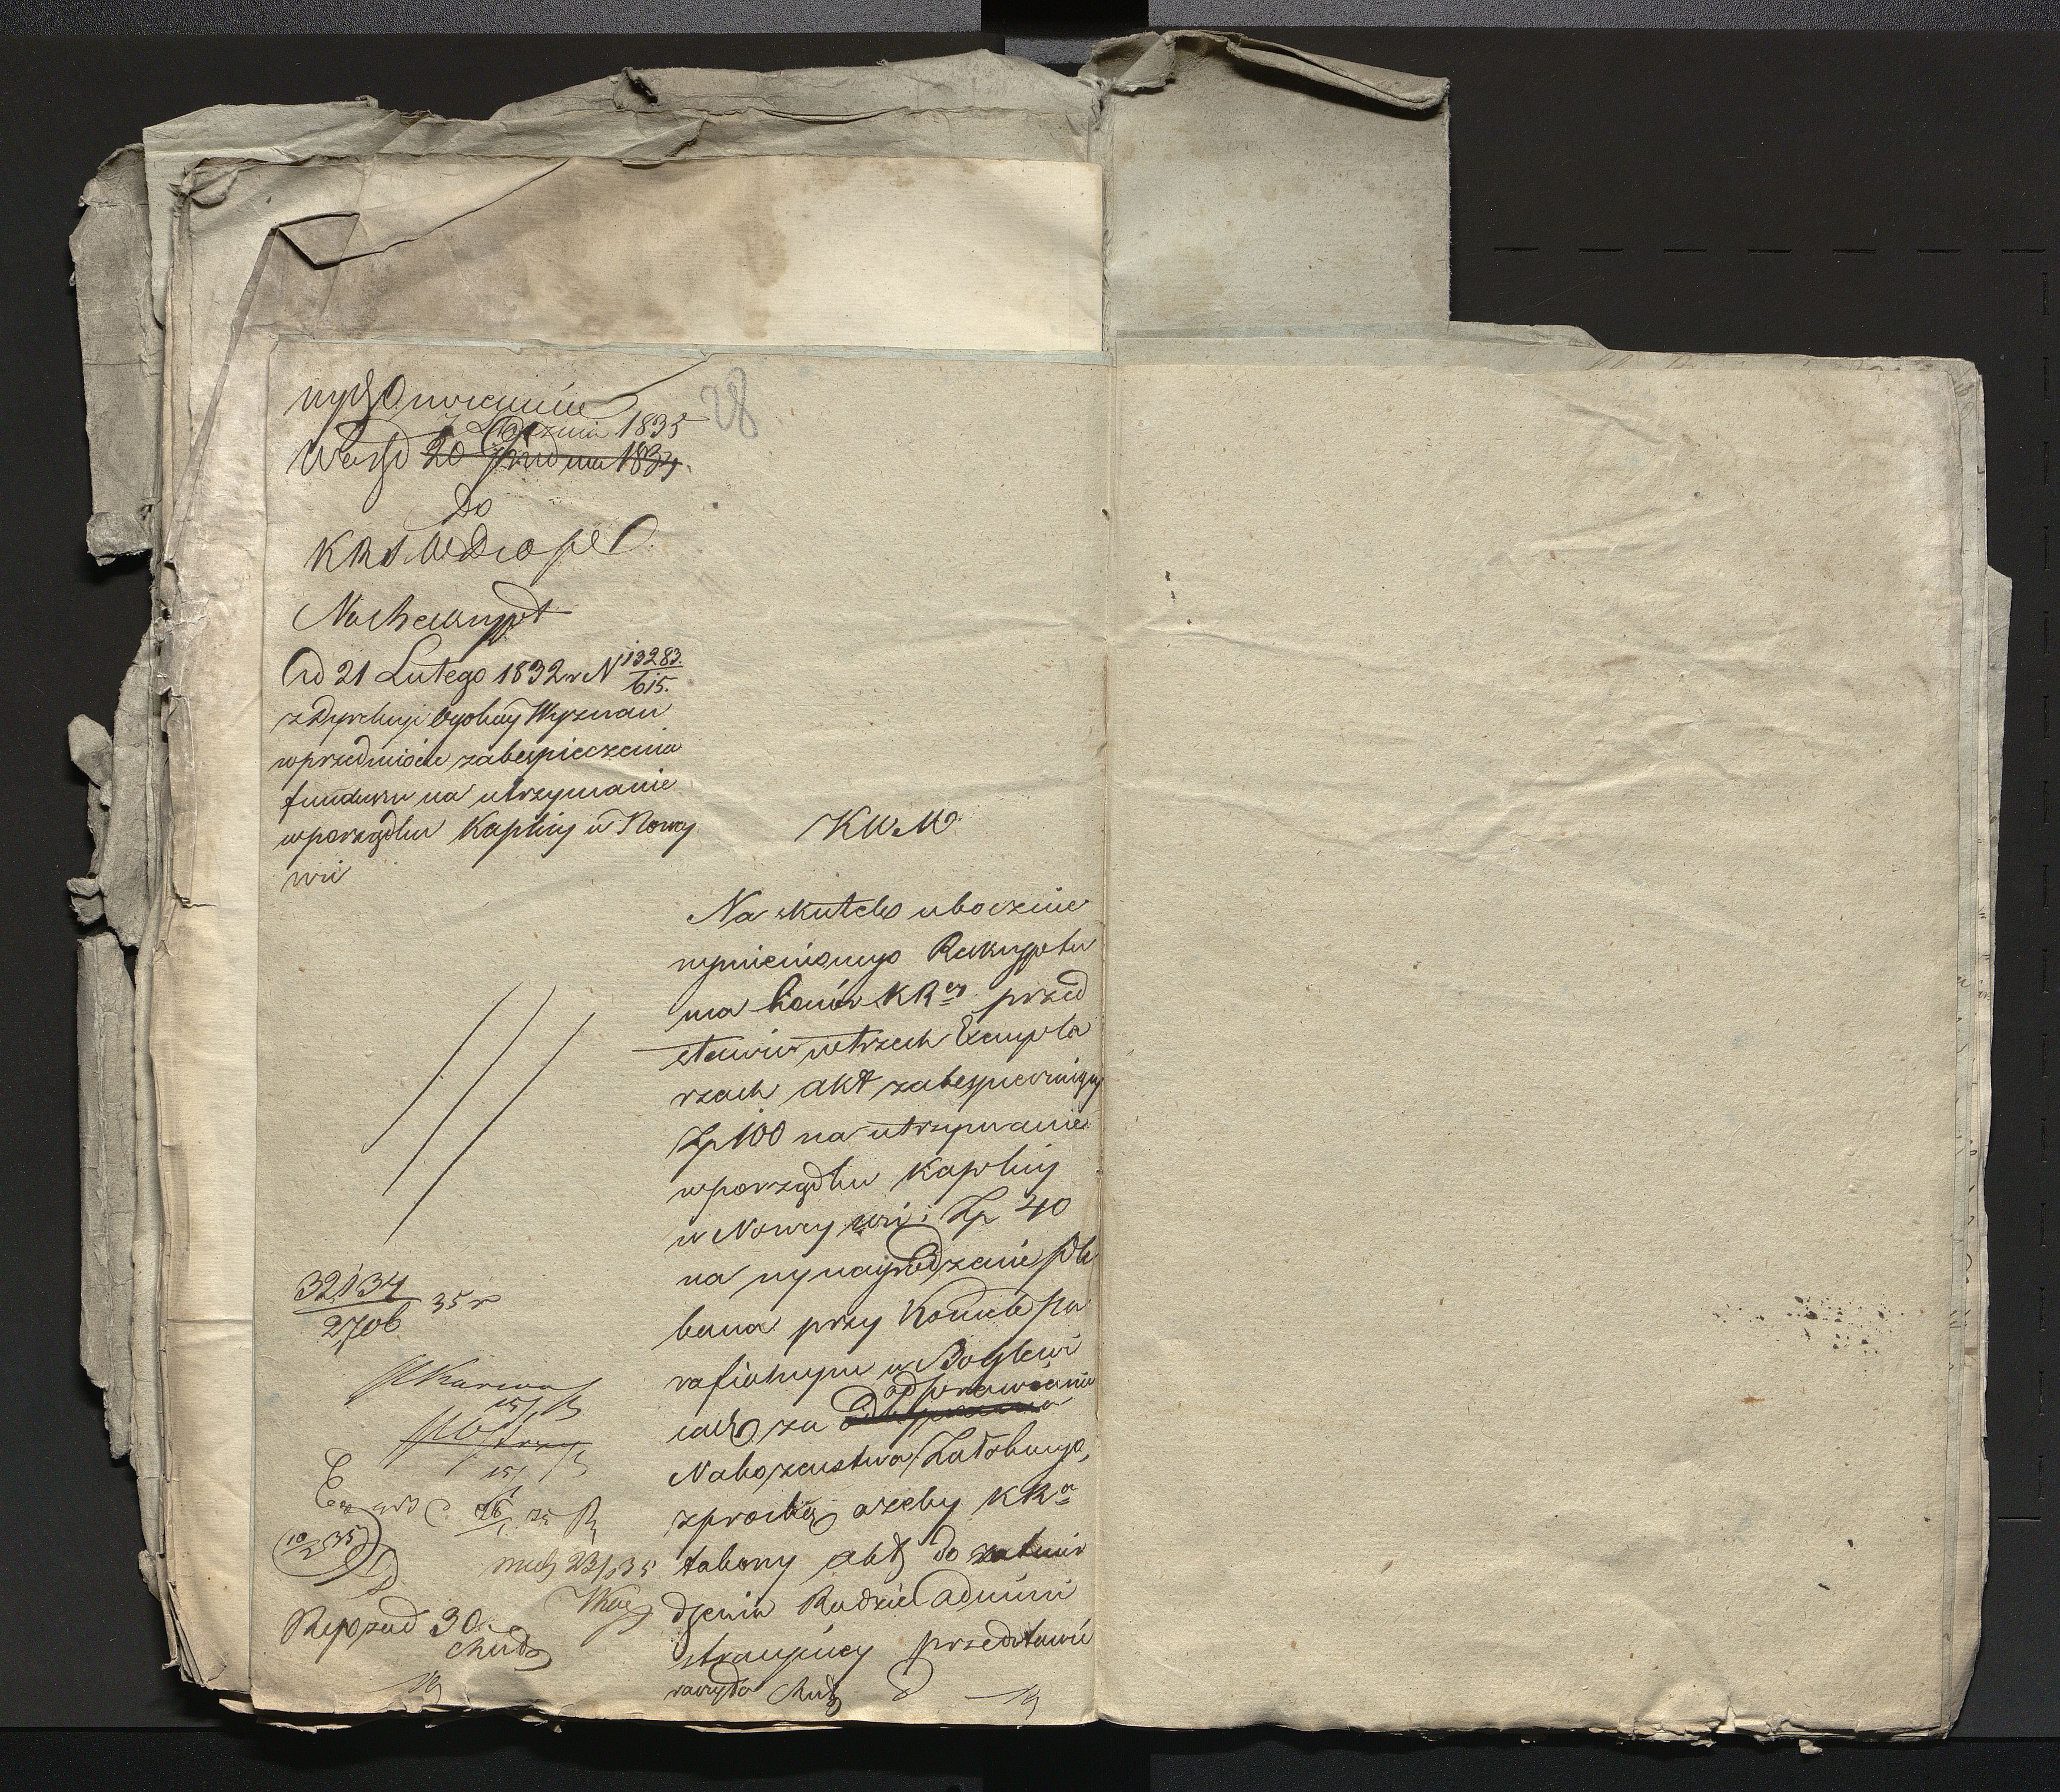 28
7 Stycznia 1835
Warsz 20 Grudnia 1834
do
KRSWDiOPEL
Na Reskrypt
Od 21 Lutego 1832 r N 13283/615.
z Dyrekcyi Ogolney Wyznan
w przedmiocie zabespieczenia
funduszu na utrzymanie
w porządku Kaplicy w Nowey
wsi
KWM
Na skutek ubocznie
wymienionego Reskryptu
ma honor KRey przed
stawić w trzech Exempla
rzach akt zabespieczaiący
Zp 100 na utrzymanie
w porządku Kaplicy
w Nowey wsi i Zp 40
na wynagrodzenie Ple
bana przy Kościele Pa
rafialnym w Boglewi
cach za odprawianie
Nabożeństwa Żałobnego,
z prośbą ażeby KRa
takowy akt do zatwier
dzenia Radzie Admini
stracyiney przedstawić
raczyła
32134/2706 35 r
15/1
15/1
23/1 35
10/2 35
Rep pod 30